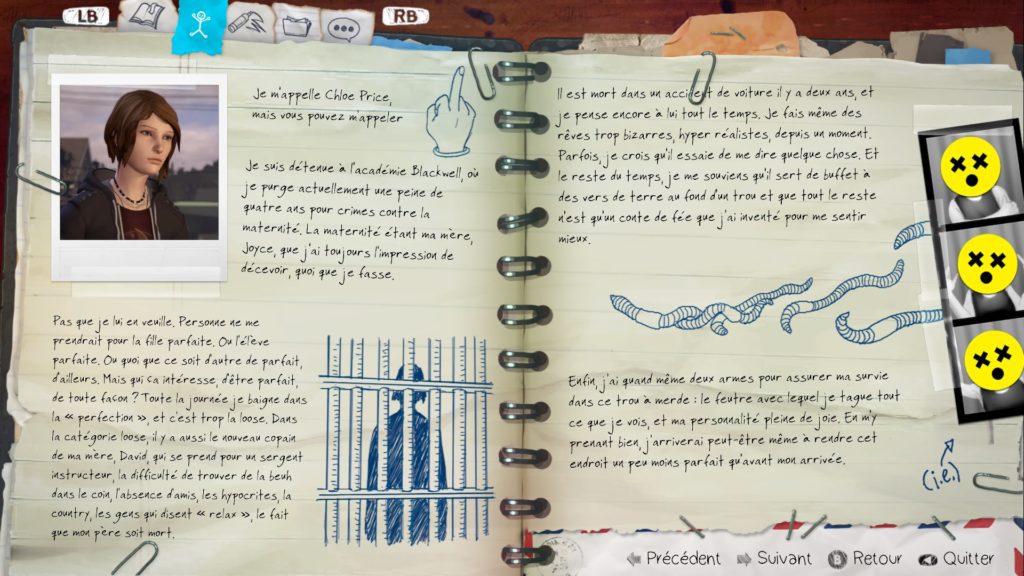 LB
RB
Je m'appelle Chloe Price,
mais vous pouvez m'appeler
Je suis détenue à l'académie Blackwell, où
je purge actuellement une peine de
quatre ans pour crimes contre la
maternité. La maternité étant ma mère,
Joyce, que j'ai toujours l'impression de
décevoir, quoi que je fasse.
Pas que je lui en veuille. Personne ne me
prendrait pour la fille parfaite. Ou l'élève
parfaite. Ou quoi que ce soit d'autre de parfait,
d'ailleurs. Mais qui ça intéresse, d'être parfait,
de toute façon ? Toute la journée je baigne dans
la « perfection », et c'est trop la loose. Dans
la catégorie loose, il y a aussi le nouveau copain
de ma mère, David, qui se prend pour un sergent
instructeur, la difficulté de trouver de la beuh
dans le coin, l'absence d'amis, les hypocrites, la
country, les gens qui disent « relax », le fait
que mon père soit mort.
Il est mort dans un accident de voiture il y a deux ans, et
je pense encore à lui tout le temps. Je fais même des
rêves trop bizarres, hyper réalistes, depuis un moment.
Parfois, je crois qu'il essaie de me dire quelque chose. Et
le reste du temps, je me souviens qu'il sert de buffet à
des vers de terre au fond d'un trou et que tout le reste
n'est qu'un conte de fée que j'ai inventé pour me sentir
mieux.
Enfin, j'ai quand même deux armes pour assurer ma survie
dans ce trou à merde : le feutre avec lequel je tague tout
ce que je vois, et ma personnalité pleine de joie. En m'y
prenant bien, j'arriverai peut-être même à rendre cet
endroit un peu moins parfait qu'avant mon arrivée.
(i.e.)
Précédent
Suivant
B Retour
Quitter